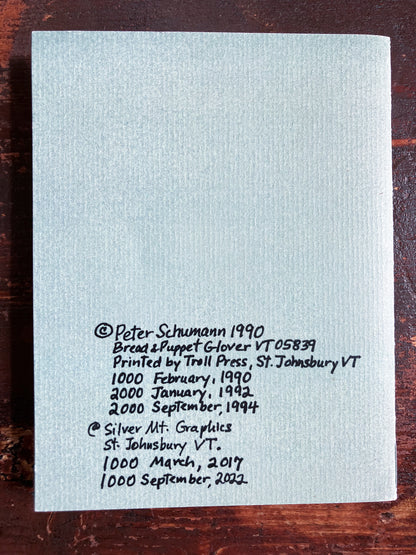 © Peter Schumann 1990
Bread & Puppet Glover VT 05839
Printed by Troll Press, St. Johnsbury VT
1000 February, 1990
2000 January, 1992
2000 September, 1994
@ Silver Mt. Graphics
St. Johnsbury VT.
1000 March, 2017
1000 September, 2022